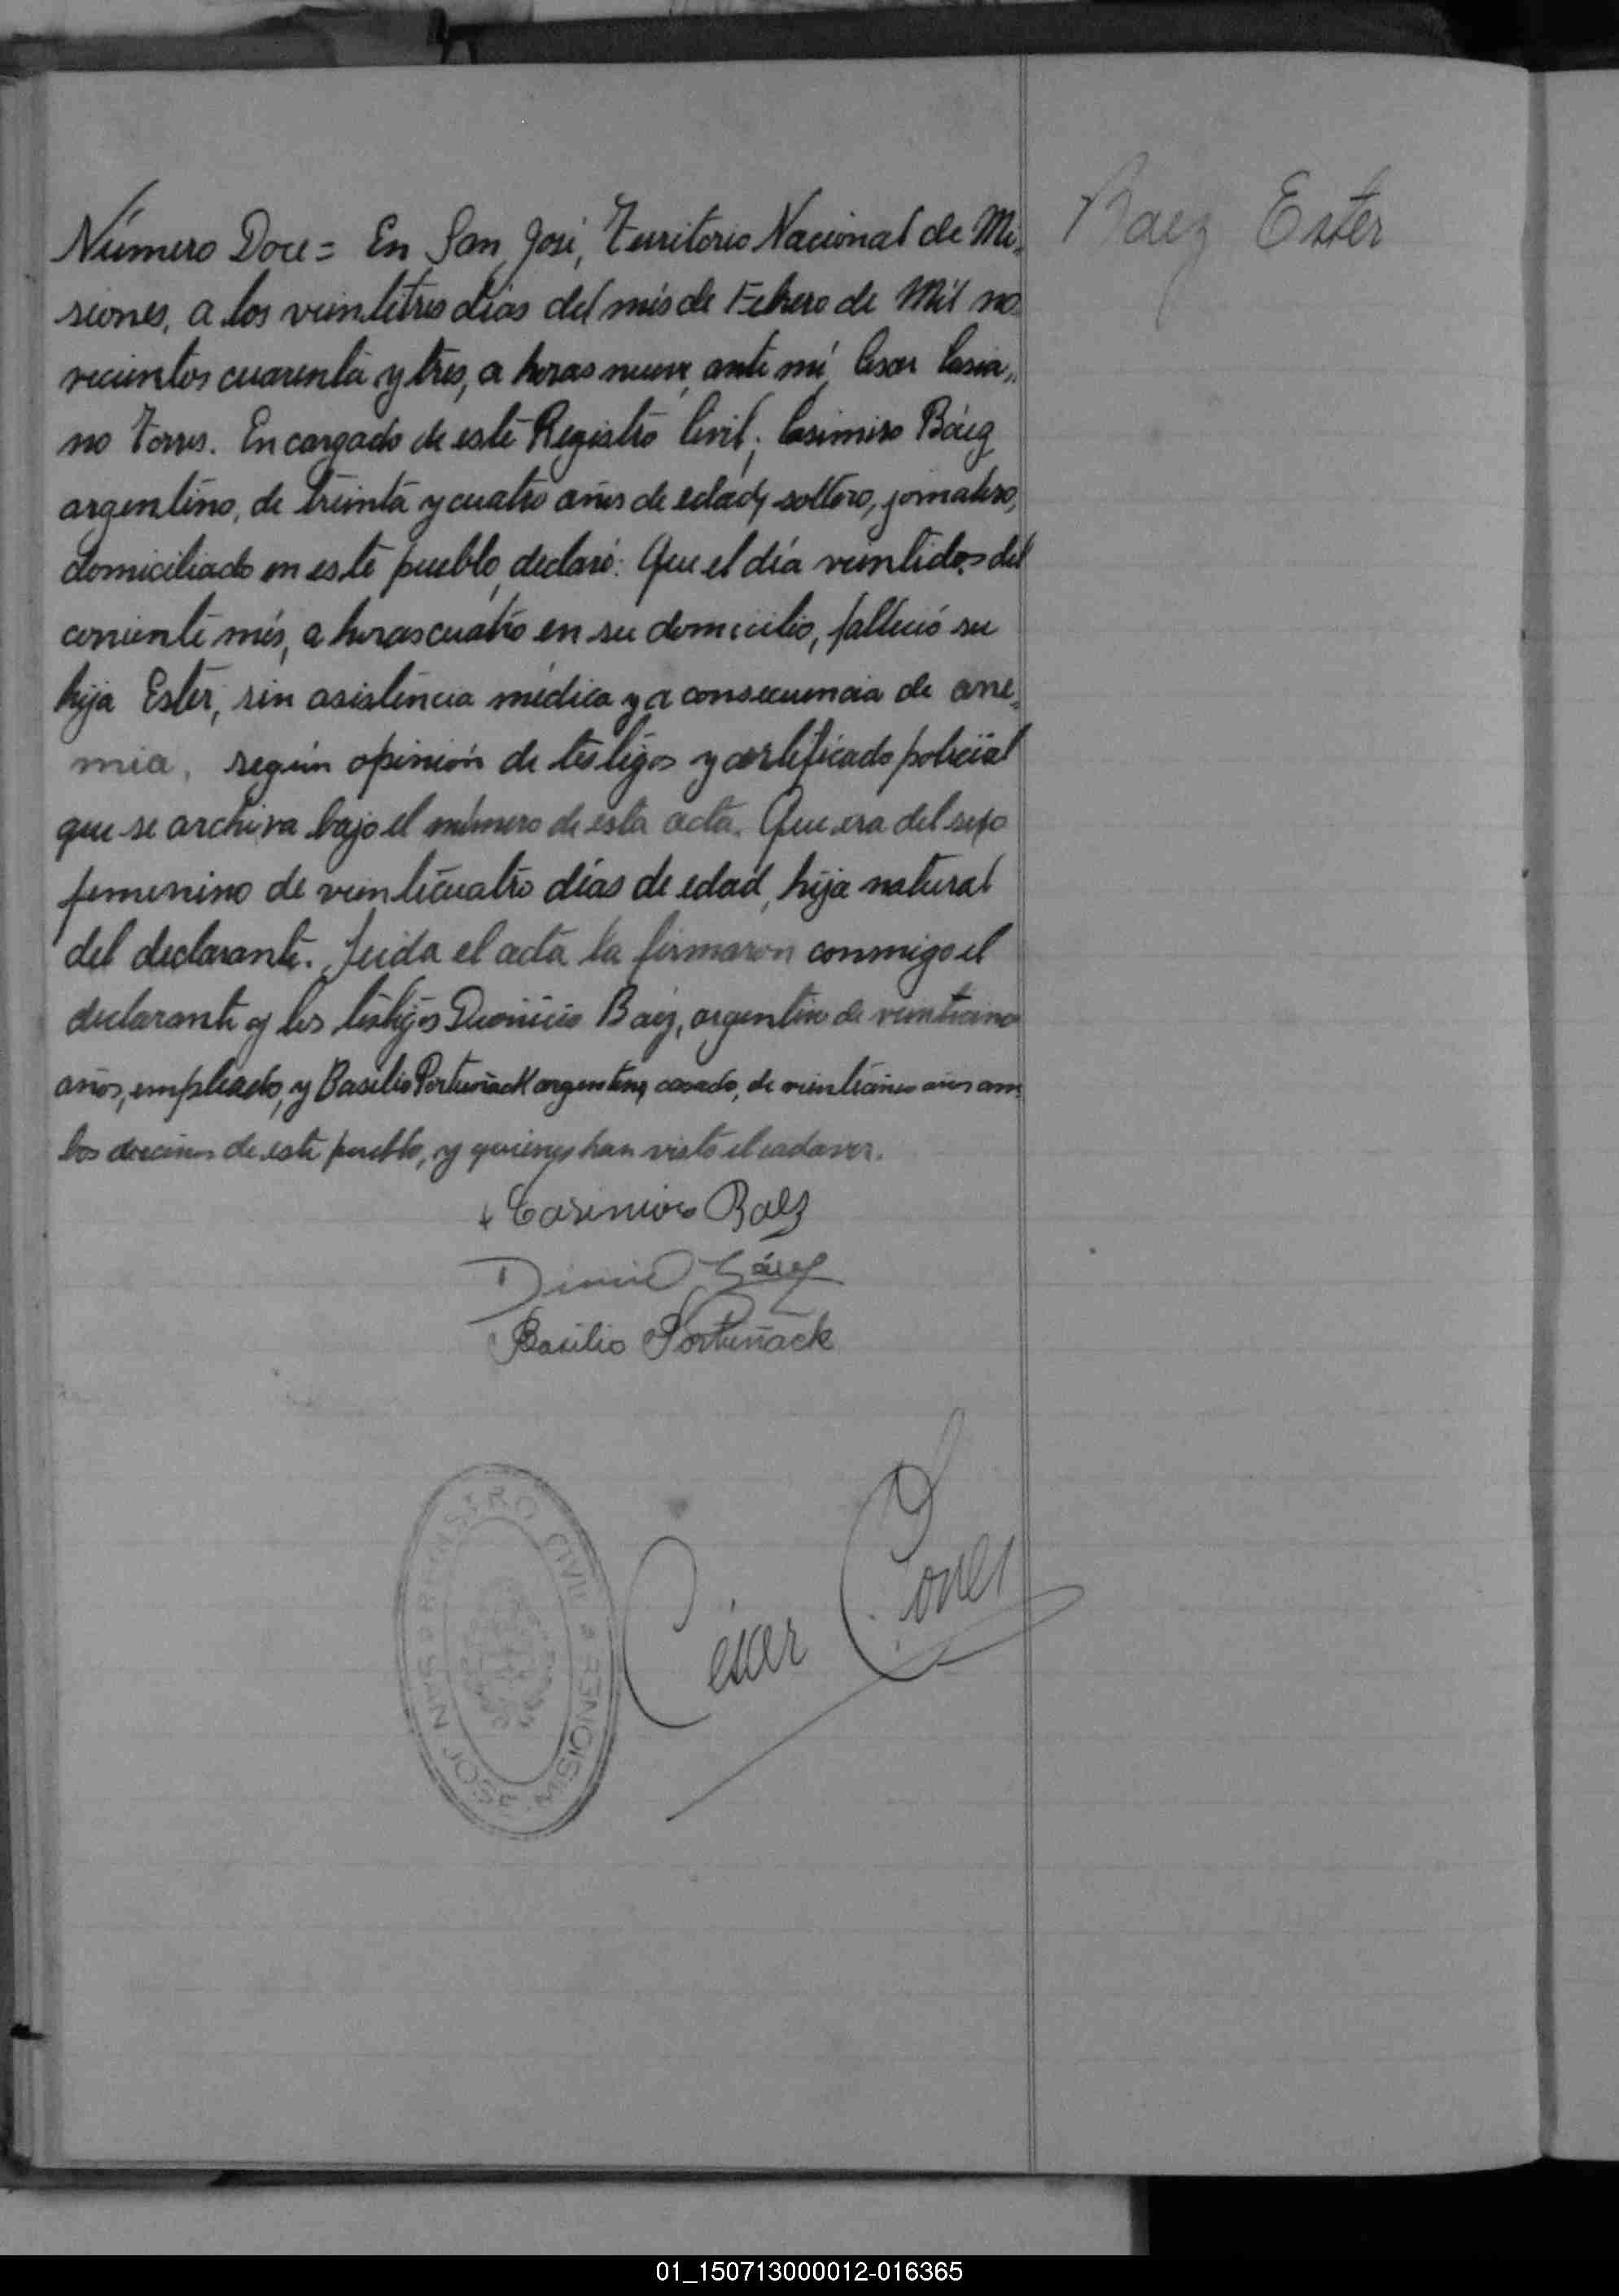 Número Doce= En San José, Territorio Nacional de Mi-
siones, a los veintitres días del més de Febrero de Mil no-
vecientos cuarenta y tres, a horas nueve, ante mí, Cesar Casia-
no Torres. Encargado de este Registro Civil; Casimiro Báez
argentino, de treinta y cuatro años de edad, soltero, jornalero,
domiciliado en este pueblo, declaró: Que el día veintidos del
corriente més, a horas cuatro en su domicilio, falleció su
hija Ester, sin asistencia médica y a consecuencia de ane-
mia, según opinión de testigos y certificado policial
que se archiva bajo el número de esta acta. Que era del sexo
femenino de veinticuatro días de edad, hija natural
del declarante. Leida el acta la firmaron conmigo el
declarante y los testigos Dionicio Baez, argentino de veinticinco
años, empleado, y Basilio Portuñack argentino, casado, de veinticinco años am-
bos vecinos de este pueblo, y quienes han visto el cadaver.
Baez Ester
Casimiro Baez
Báez
Basilio Portuñack
REGISTRO CIVIL
SAN JOSÉ MISIONES
César Torres
01_150713000012-016365